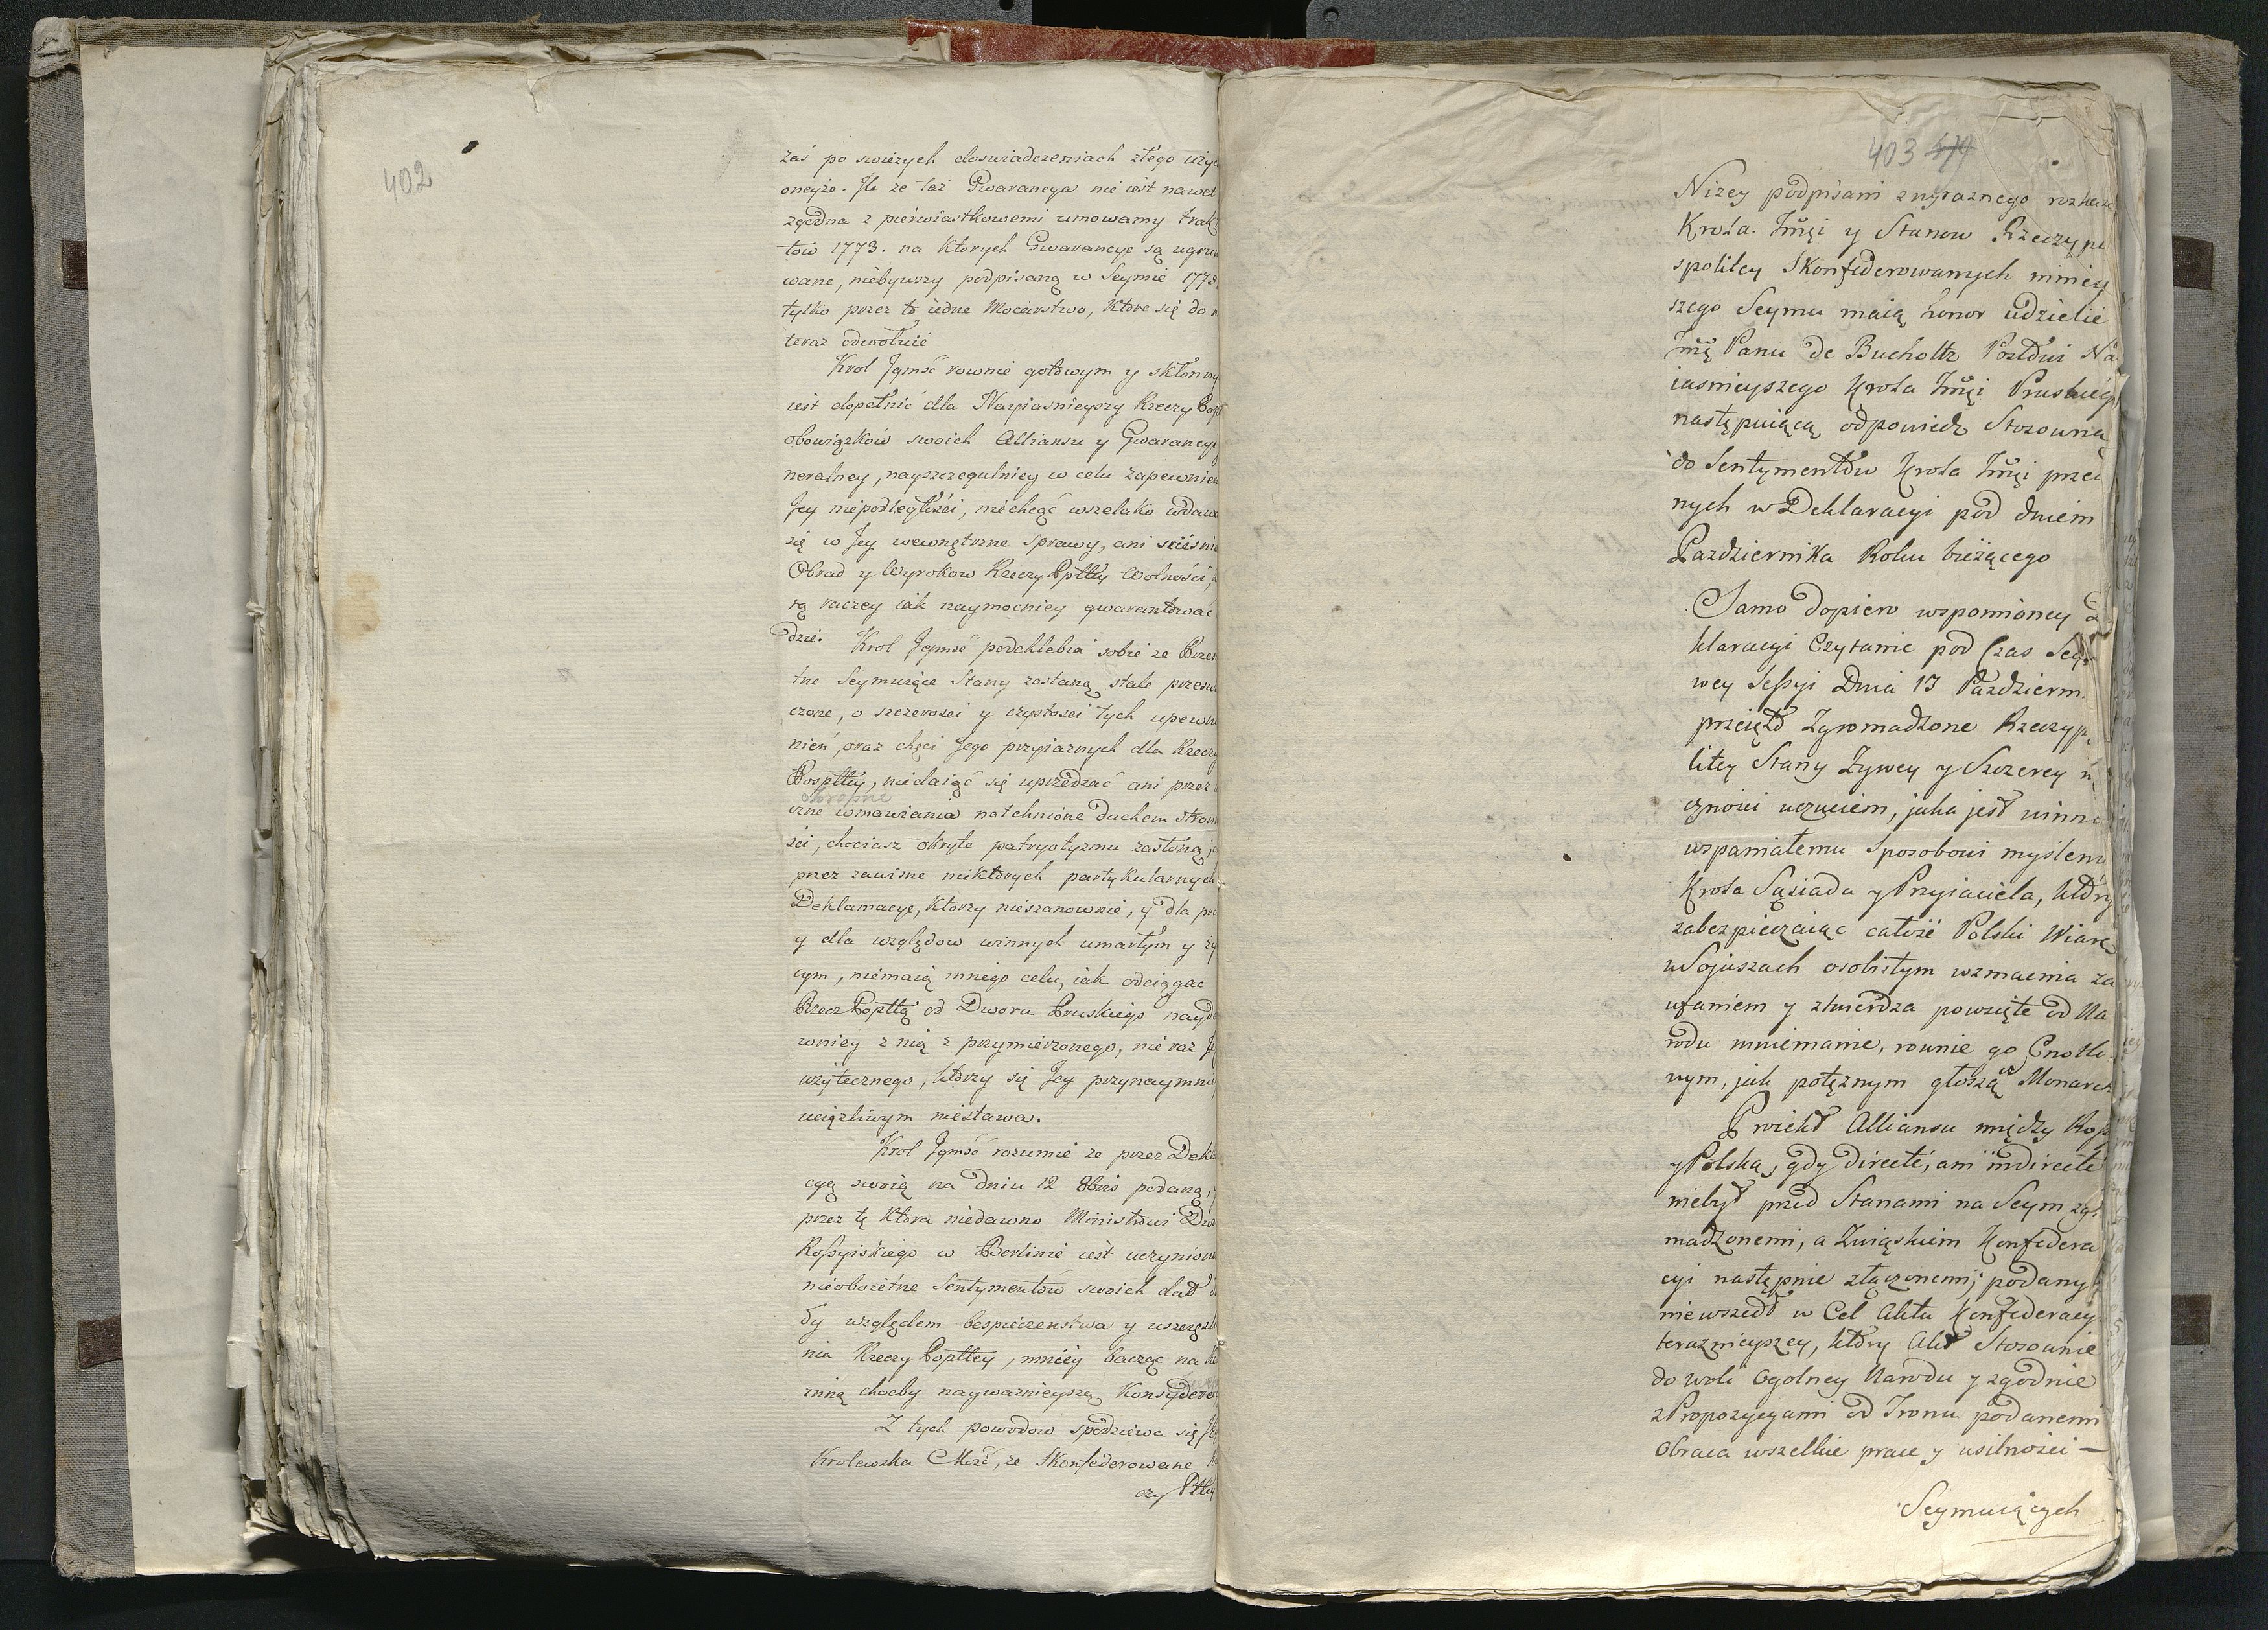 402
zaś po swieżych doswiadczeniach złego użyc
oneyże. Jle że taż Gwarancya nie iest nawet
zgodna z pierwiastkowemi umowamy trak
tow 1773. na ktorych Gwarancye są ugrun
wane, niebywszy podpisaną w Seymie 1775
tylko przez to iedne Mocarstwo, ktore się do n
teraz odwołuie
Krol Jgmść rownie gotowym y skłonny
iest dopełnić dla Nayiasnieyszy Rzeczy Posp
obowiązków swoich Alliansu y Gwarancyi
neralney, nayszczegulniey w celu zapewnien
Jey niepodległości, niechcąc wszelako wdawa
się w Jey wewnętrzne sprawy, ani scieśnia
Obrad y Wyrokow Rzeczy Ppltty Wolności,
rą raczey iak naymocniey gwarantować
dzie. Krol Jegmść podchlebia sobie że Przes
tne Seymuiące Stany zostaną stale przesw
czone, o szczerosci y czystosci tych upewn
nień, oraz chęci Jego przyiaznych dla Rzeczy
Pospltty, niedaiąć się uprzedzać ani przez
okropne
czne wmawiania natchnione duchem stron
ści, chociasz okryte patryotyzmu zasłoną,
przez zawisne niektorych partykularnych
Deklamacye, ktorzy nieszanownie, y dla pra
y dla względow winnych umarłym y ży
cym, niemaią innego celu, iak odciągac
Rzecz Popttą od Dworu Pruskiego nayda
wniey z nią z przymierzonego, nie raz Je
użytecznego, ktorzy się Jey przynaymnie
uciązliwym niestawa.
Krol Jgmść rozumie że przez Dekl
cyą swoią na dniu 12 8bris podaną,
przez tę ktora niedawno Ministrowi Dwo
Rossyiskiego w Berlinie iest uczynion
nieoboiętne Sentymentow swoich dał d
dy względem bespieczenstwa y uszczęśl
nia Rzeczy Popttey, mniey bacząc na
inną choćby naywaznieyszą Konsydera
Z tych powodow spodziewa się Je
Krolewska Mość, że Skonfederowane
czy Pttey
403 479
Niżey podpisani z wyraznego rozkaz
Krola Jmći y Stanow Rzeczypo
spolitey Skonfederowanych niniey
szego Seymu maią honor udzielić
Jmć Panu de Bucholtz Posłowi Na
iasnieyszego Krola Jmći Pruskieg
następuiącą odpowiedz Stosowną
do Sentymentów Krola Jmći przed
nych w Deklaracyi pod dniem
Pazdziernika Roku bieżącego
Samo dopiero wspomioney D
klaracyi Czytanie pod Czas Sey
wey Sessyi Dnia 13 Pazdziern.
przeięło Zgromadzone Rzeczypo
litey Stany Zywey y Szczerey w
czności uczuciem, jaka jest winna
wspaniałemu Sposobowi myślenia
Krola Sąsiada y Przyiaciela, który
zabezpieczaiąc całość Polski Wiarę
w Sojuszach osobistym wzmacnia za
ufaniem y ztwierdza powzięte od Na
rodu mniemanie, rownie go Cnotli
wym, jak potęznym głoszące Monarch
Proiekt Alliansu między Ross
y Polską, gdy directé, ani indirecté
niebył przed Stanami na Seym zgr
madzonemi, a Związkiem Konfedera
cyi następnie złączonemi; podany
niewszedł w Cel Aktu Konfederacy
teraznieyszey, który Akt Stosownie
do woli Ogolney Narodu y zgodnie
z Propozycyami od Tronu podanemi
Obraca wszelkie prace y usilnosci —
Seymuiących